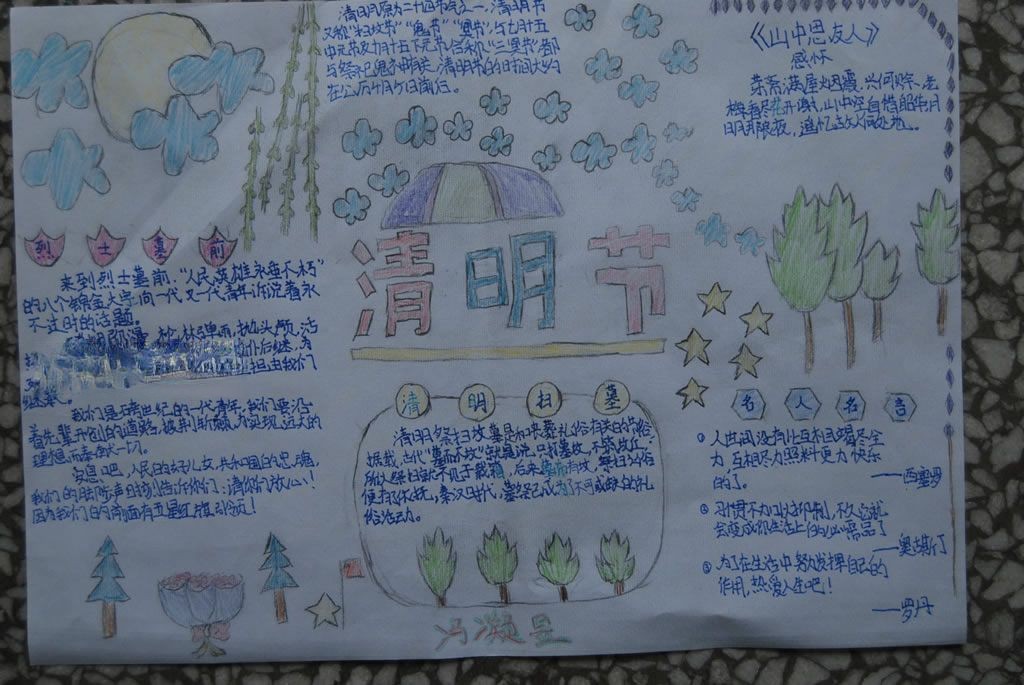 清明原为二十四节气之一,清明节
又称“扫坟节”“鬼节”“冥节”,与七月十五
中元节及十月十五下元节,合称“三冥节”都
与祭祀鬼神有关。清明节的时间大约
在公历4月5日前后。
《山中思友人》
感怀
茶斋满屋烟霞,兴何赊,老
梅看尽花开谢,山中空自惜韶华,月
明无限夜,追忆故人何处也。
清明节
烈士墓前
来到烈士墓前,“人民英雄永垂不朽”
的八个镏金大字,向一代又一代青年诉说着永
不过时的话题。
枪林弹雨,抛头颅,洒
仆后继,为
担由我们
继承。
我们是跨世纪的一代青年,我们要沿
着先辈开创的道路,披荆斩棘,为实现远大的
理想而奉献一切。
安息吧,人民的好儿女,共和国的忠魂,
我们的脚步声时刻告诉你们:请你们放心!
因为我们的前面有五星红旗引领!
清明扫墓
清明祭扫坟墓是和丧葬礼俗有关的节俗。
据载,古代“墓而不坟”,就是说只打墓坑,不筑坟丘,
所以祭扫就不见于载籍。后来墓而且坟,祭扫之俗
便有了依托。秦汉时代,墓祭已成为不可或缺的礼
俗活动。
名人名言
①人世间没有比互相竭尽全
力、互相尽力照料更力快乐
的了。
——西塞罗
②习惯不加以抑制,不久它就
会变成你生活上的必需品了
——奥古斯丁
③为了在生活中努力发挥自己的
作用,热爱人生吧!
——罗丹
冯凝昱